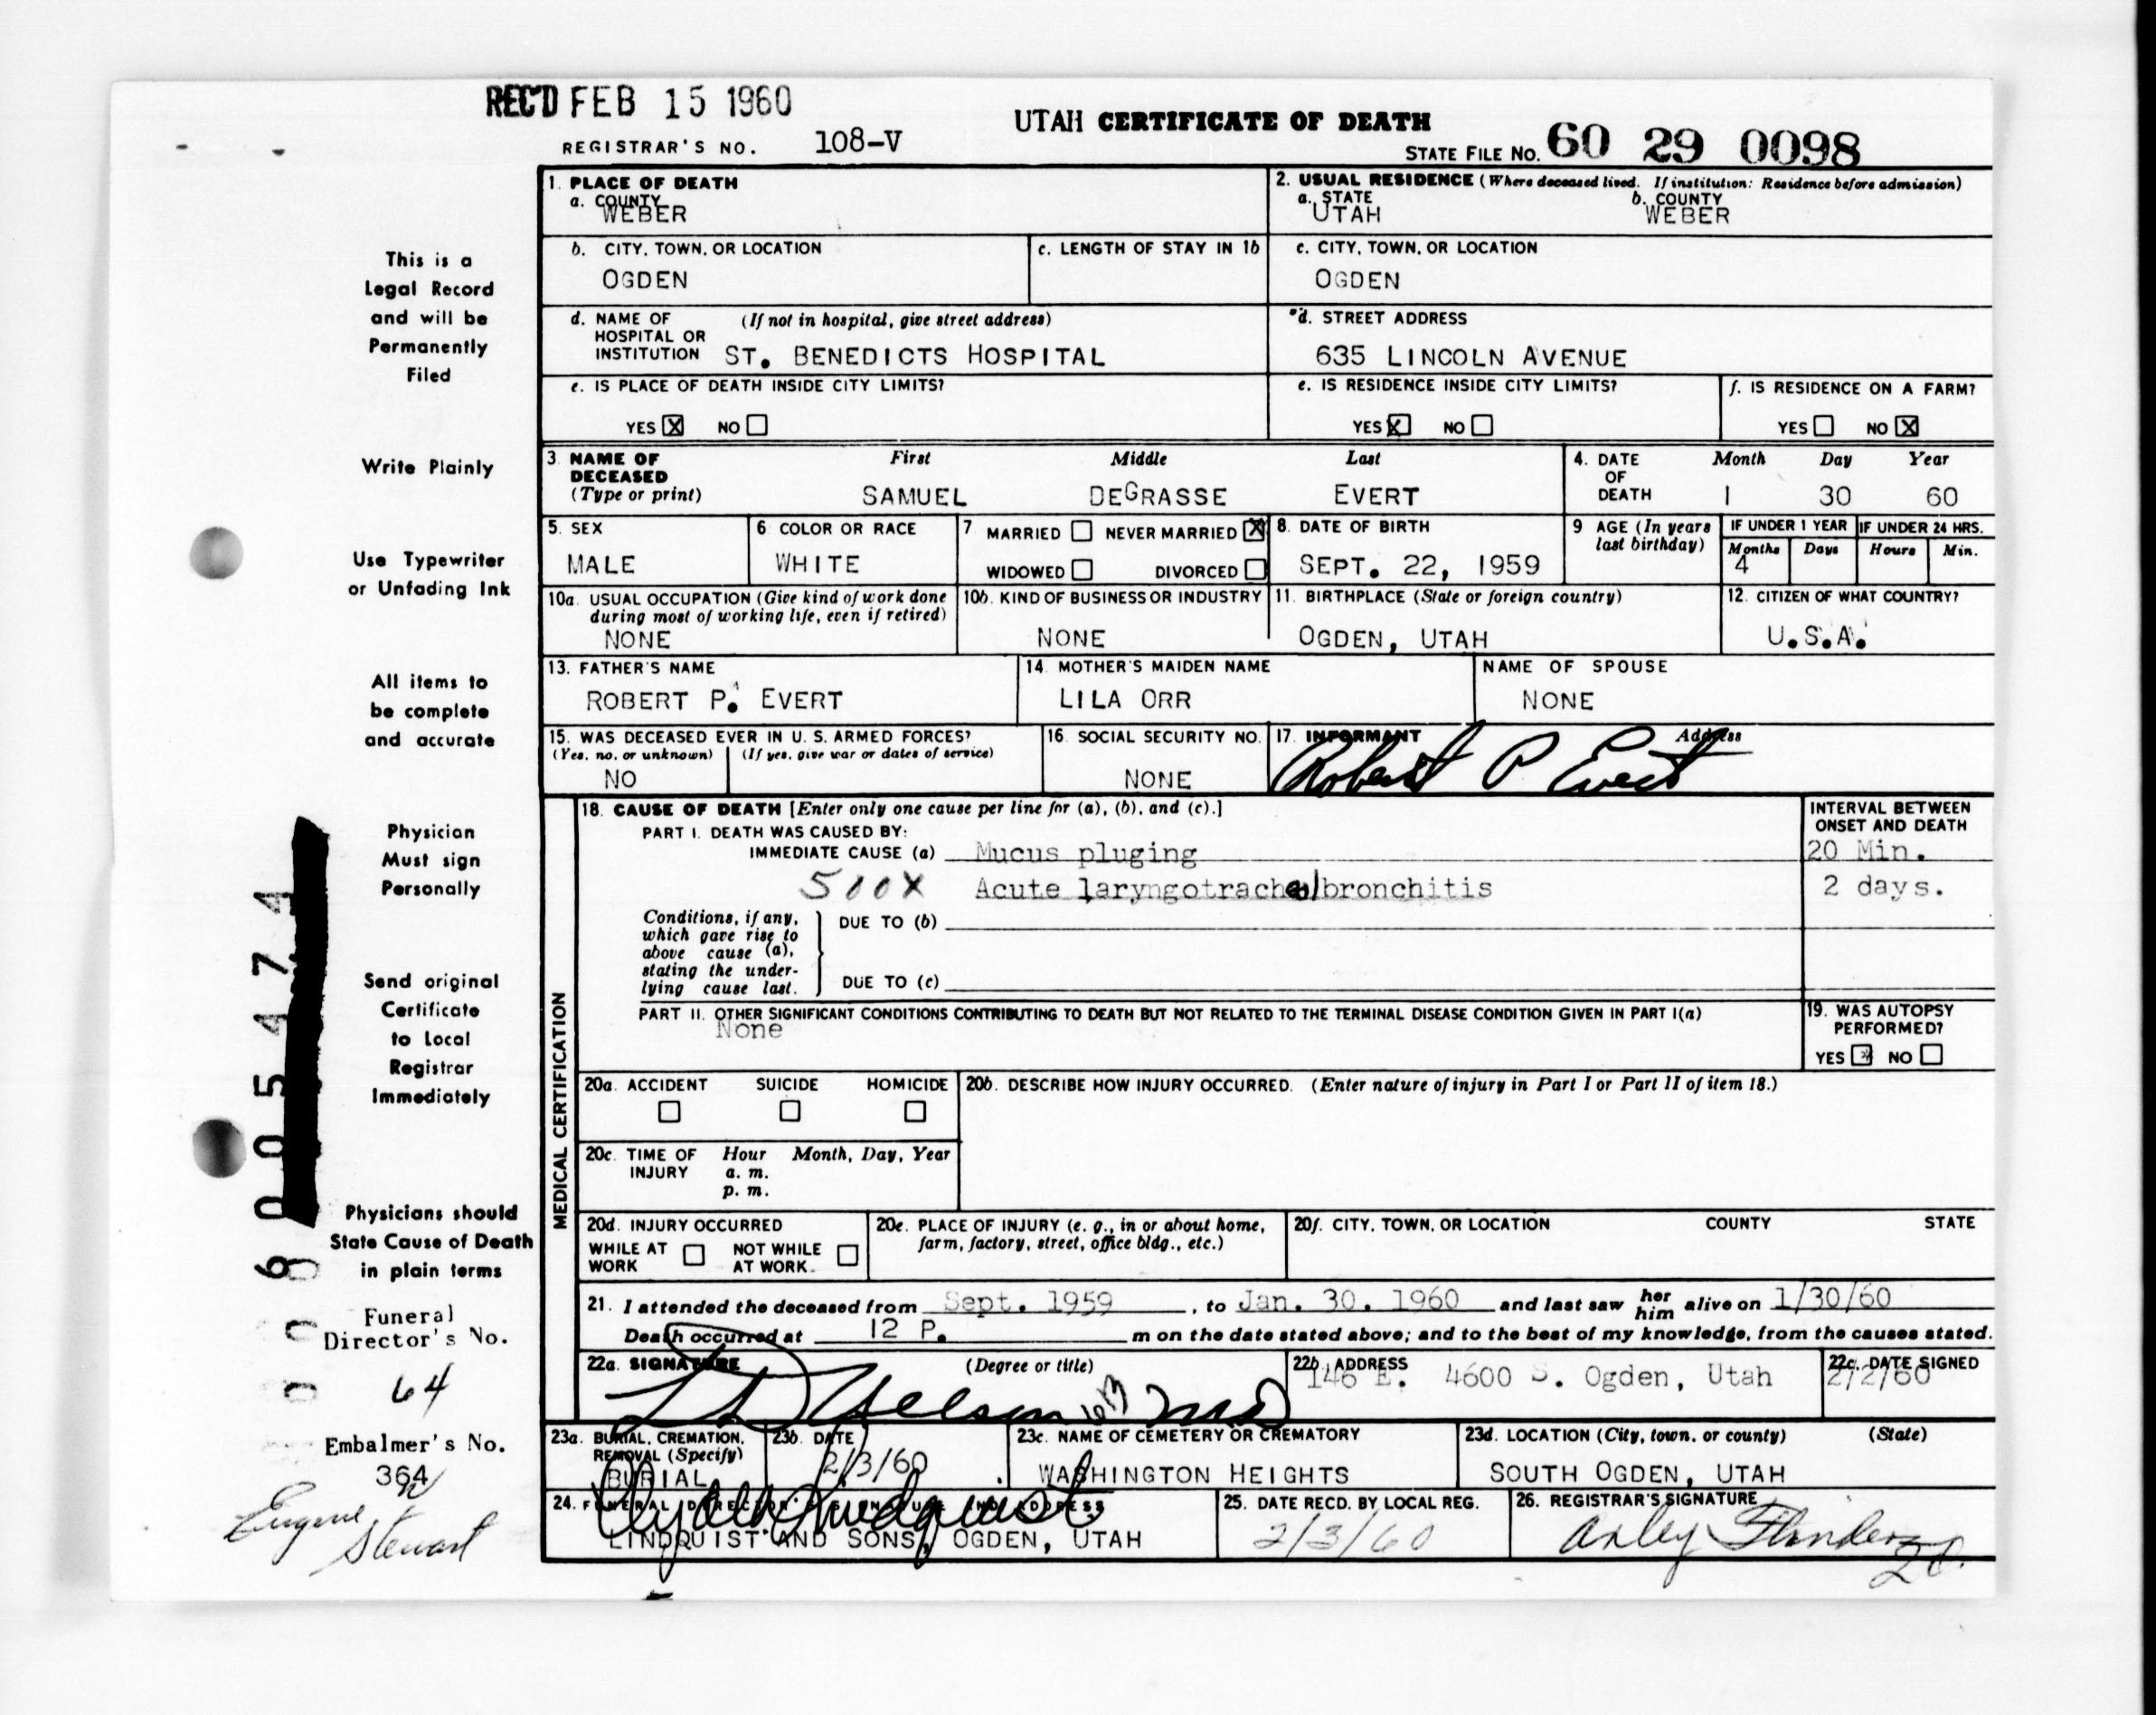 REC'D FEB 15 1960
UTAH CERTIFICATE OF DEATH
REGISTRAR'S NO. 108-V
STATE FILE NO. 60 29 0098
1. PLACE OF DEATH
a. COUNTY
WEBER
2. USUAL RESIDENCE (Where deceased lived. If institution: Residence before admission)
a. STATE b. COUNTY
UTAH WEBER
b. CITY, TOWN, OR LOCATION
OGDEN
c. LENGTH OF STAY IN 1b
c. CITY, TOWN, OR LOCATION
OGDEN
d. NAME OF (If not in hospital, give street address)
HOSPITAL OR
INSTITUTION ST. BENEDICTS HOSPITAL
d. STREET ADDRESS
635 LINCOLN AVENUE
e. IS PLACE OF DEATH INSIDE CITY LIMITS?
YES X NO
e. IS RESIDENCE INSIDE CITY LIMITS?
YES X NO
f. IS RESIDENCE ON A FARM?
YES NO X
3. NAME OF First Middle Last
DECEASED
(Type or print) SAMUEL DEGRASSE EVERT
4. DATE Month Day Year
OF
DEATH 1 30 60
5. SEX
MALE
6. COLOR OR RACE
WHITE
7. MARRIED NEVER MARRIED X
WIDOWED DIVORCED
8. DATE OF BIRTH
SEPT. 22, 1959
9. AGE (In years
last birthday)
IF UNDER 1 YEAR IF UNDER 24 HRS.
Months Days Hours Min.
4
10a. USUAL OCCUPATION (Give kind of work done
during most of working life, even if retired)
NONE
10b. KIND OF BUSINESS OR INDUSTRY
NONE
11. BIRTHPLACE (State or foreign country)
OGDEN, UTAH
12. CITIZEN OF WHAT COUNTRY?
U.S.A.
13. FATHER'S NAME
ROBERT P. EVERT
14. MOTHER'S MAIDEN NAME
LILA ORR
NAME OF SPOUSE
NONE
15. WAS DECEASED EVER IN U. S. ARMED FORCES?
(Yes, no, or unknown) (If yes, give war or dates of service)
NO
16. SOCIAL SECURITY NO.
NONE
17. INFORMANT Address
Robert P Evert
MEDICAL CERTIFICATION
18. CAUSE OF DEATH [Enter only one cause per line for (a), (b), and (c).]
INTERVAL BETWEEN
ONSET AND DEATH
PART I. DEATH WAS CAUSED BY:
IMMEDIATE CAUSE (a) Mucus pluging 20 Min.
500X Acute laryngotrachealbronchitis 2 days.
Conditions, if any,
which gave rise to
above cause (a),
stating the under-
lying cause last.
DUE TO (b)
DUE TO (c)
PART II. OTHER SIGNIFICANT CONDITIONS CONTRIBUTING TO DEATH BUT NOT RELATED TO THE TERMINAL DISEASE CONDITION GIVEN IN PART I(a)
None
19. WAS AUTOPSY
PERFORMED?
YES X NO
20a. ACCIDENT SUICIDE HOMICIDE
20b. DESCRIBE HOW INJURY OCCURRED. (Enter nature of injury in Part I or Part II of item 18.)
20c. TIME OF Hour Month, Day, Year
INJURY a. m.
p. m.
20d. INJURY OCCURRED
WHILE AT NOT WHILE
WORK AT WORK
20e. PLACE OF INJURY (e. g., in or about home,
farm, factory, street, office bldg., etc.)
20f. CITY, TOWN, OR LOCATION COUNTY STATE
21. I attended the deceased from Sept. 1959, to Jan. 30. 1960 and last saw her him alive on 1/30/60
Death occurred at 12 P. m on the date stated above; and to the best of my knowledge, from the causes stated.
22a. SIGNATURE (Degree or title)
Nelson MD
22b. ADDRESS
146 E. 4600 S. Ogden, Utah
22c. DATE SIGNED
2/2/60
23a. BURIAL, CREMATION,
REMOVAL (Specify)
BURIAL
23b. DATE
2/3/60
23c. NAME OF CEMETERY OR CREMATORY
WASHINGTON HEIGHTS
23d. LOCATION (City, town, or county) (State)
SOUTH OGDEN, UTAH
24. FUNERAL DIRECTOR'S SIGNATURE AND ADDRESS
Lindquist
LINDQUIST AND SONS, OGDEN, UTAH
25. DATE RECD. BY LOCAL REG.
2/3/60
26. REGISTRAR'S SIGNATURE
This is a
Legal Record
and will be
Permanently
Filed
Write Plainly
Use Typewriter
or Unfading Ink
All items to
be complete
and accurate
Physician
Must sign
Personally
Send original
Certificate
to Local
Registrar
Immediately
Physicians should
State Cause of Death
in plain terms
Funeral
Director's No.
64
Embalmer's No.
364
Eugene
Stewart
6005474